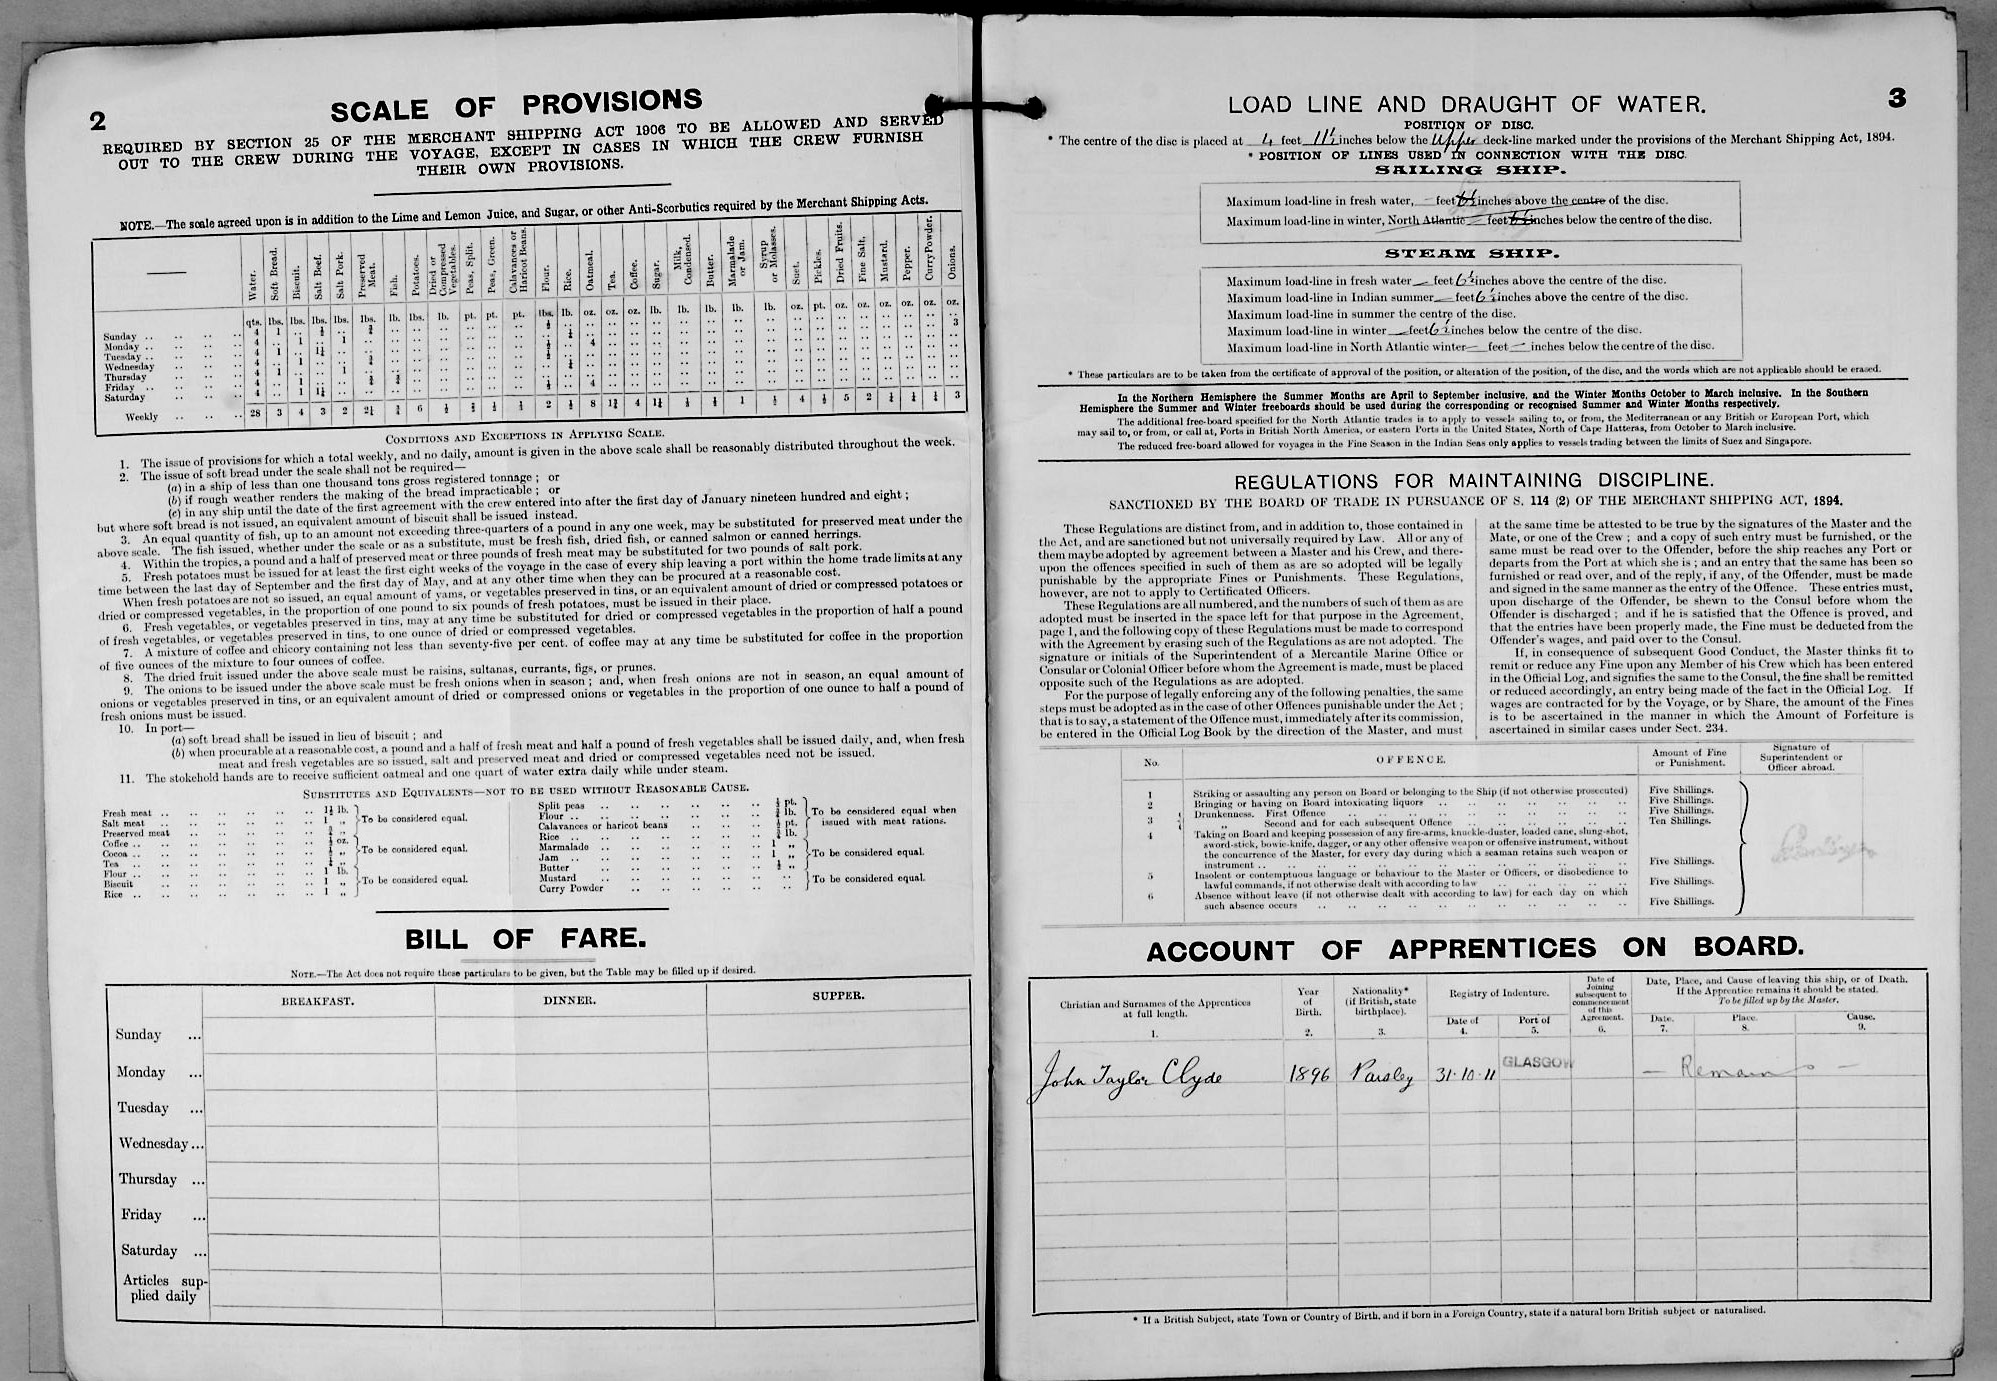 2
SCALE OF PROVISIONS
REQUIRED BY SECTION 25 OF THE MERCHANT SHIPPING ACT 1906 TO BE ALLOWED AND SERVED
OUT TO THE CREW DURING THE VOYAGE, EXCEPT IN CASES IN WHICH THE CREW FURNISH
THEIR OWN PROVISIONS.
NOTE.—The scale agreed upon is in addition to the Lime and Lemon Juice, and Sugar, or other Anti-Scorbutics required by the Merchant Shipping Acts.
Water. Soft Bread. Biscuit. Salt Beef. Salt Pork. Preserved Meat. Fish. Potatoes. Dried or Compressed Vegetables. Peas, Split. Peas, Green. Calavances or Haricot Beans. Flour. Rice. Oatmeal. Tea. Coffee. Sugar. Milk, Condensed. Butter. Marmalade or Jam. Syrup or Molasses. Suet. Pickles. Dried Fruits. Fine Salt. Mustard. Pepper. Curry Powder. Onions.
qts. lbs. lbs. lbs. lbs. lbs. lb. lbs. lb. pt. pt. pt. lbs. lb. oz. oz. oz. lb. lb. lb. lb. lb. oz. pt. oz. oz. oz. oz. oz. oz.
Sunday
Monday
Tuesday
Wednesday
Thursday
Friday
Saturday
Weekly 28 3 4 3 2 2¼ ¾ 6 ½ ⅔ ⅓ ⅓ 2 ½ 8 1¾ 4 1¼ ⅓ ½ 1 ½ 4 ½ 5 2 ¼ ¼ ¼ 3
CONDITIONS AND EXCEPTIONS IN APPLYING SCALE.
1. The issue of provisions for which a total weekly, and no daily, amount is given in the above scale shall be reasonably distributed throughout the week.
2. The issue of soft bread under the scale shall not be required—
(a) in a ship of less than one thousand tons gross registered tonnage; or
(b) if rough weather renders the making of the bread impracticable; or
(c) in any ship until the date of the first agreement with the crew entered into after the first day of January nineteen hundred and eight;
but where soft bread is not issued, an equivalent amount of biscuit shall be issued instead.
3. An equal quantity of fish, up to an amount not exceeding three-quarters of a pound in any one week, may be substituted for preserved meat under the
above scale. The fish issued, whether under the scale or as a substitute, must be fresh fish, dried fish, or canned salmon or canned herrings.
4. Within the tropics, a pound and a half of preserved meat or three pounds of fresh meat may be substituted for two pounds of salt pork.
5. Fresh potatoes must be issued for at least the first eight weeks of the voyage in the case of every ship leaving a port within the home trade limits at any
time between the last day of September and the first day of May, and at any other time when they can be procured at a reasonable cost.
When fresh potatoes are not so issued, an equal amount of yams, or vegetables preserved in tins, or an equivalent amount of dried or compressed potatoes or
dried or compressed vegetables, in the proportion of one pound to six pounds of fresh potatoes, must be issued in their place.
6. Fresh vegetables, or vegetables preserved in tins, may at any time be substituted for dried or compressed vegetables in the proportion of half a pound
of fresh vegetables, or vegetables preserved in tins, to one ounce of dried or compressed vegetables.
7. A mixture of coffee and chicory containing not less than seventy-five per cent. of coffee may at any time be substituted for coffee in the proportion
of five ounces of the mixture to four ounces of coffee.
8. The dried fruit issued under the above scale must be raisins, sultanas, currants, figs, or prunes.
9. The onions to be issued under the above scale must be fresh onions when in season; and, when fresh onions are not in season, an equal amount of
onions or vegetables preserved in tins, or an equivalent amount of dried or compressed onions or vegetables in the proportion of one ounce to half a pound of
fresh onions must be issued.
10. In port—
(a) soft bread shall be issued in lieu of biscuit; and
(b) when procurable at a reasonable cost, a pound and a half of fresh meat and half a pound of fresh vegetables shall be issued daily, and, when fresh
meat and fresh vegetables are so issued, salt and preserved meat and dried or compressed vegetables need not be issued.
11. The stokehold hands are to receive sufficient oatmeal and one quart of water extra daily while under steam.
SUBSTITUTES AND EQUIVALENTS—NOT TO BE USED WITHOUT REASONABLE CAUSE.
Fresh meat 1½ lb.
Salt meat 1 „
Preserved meat ¾ „
To be considered equal.
Coffee ½ oz.
Cocoa ½ „
Tea ¼ „
To be considered equal.
Flour 1 lb.
Biscuit 1 „
Rice 1 „
To be considered equal.
Split peas ⅓ pt.
Flour ½ lb.
Calavances or haricot beans ⅓ pt.
Rice ½ lb.
To be considered equal when issued with meat rations.
Marmalade 1 „
Jam 1 „
Butter ½ „
To be considered equal.
Mustard
Curry Powder
To be considered equal.
BILL OF FARE.
NOTE.—The Act does not require these particulars to be given, but the Table may be filled up if desired.
BREAKFAST. DINNER. SUPPER.
Sunday ...
Monday ...
Tuesday ...
Wednesday ...
Thursday ...
Friday ...
Saturday ...
Articles sup-
plied daily
3
LOAD LINE AND DRAUGHT OF WATER.
POSITION OF DISC.
* The centre of the disc is placed at 4 feet 11½ inches below the Upper deck-line marked under the provisions of the Merchant Shipping Act, 1894.
* POSITION OF LINES USED IN CONNECTION WITH THE DISC.
SAILING SHIP.
Maximum load-line in fresh water, — feet 6½ inches above the centre of the disc.
Maximum load-line in winter, North Atlantic — feet 6½ inches below the centre of the disc.
STEAM SHIP.
Maximum load-line in fresh water — feet 6½ inches above the centre of the disc.
Maximum load-line in Indian summer — feet 6½ inches above the centre of the disc.
Maximum load-line in summer the centre of the disc.
Maximum load-line in winter — feet 6½ inches below the centre of the disc.
Maximum load-line in North Atlantic winter — feet — inches below the centre of the disc.
* These particulars are to be taken from the certificate of approval of the position, or alteration of the position, of the disc, and the words which are not applicable should be erased.
In the Northern Hemisphere the Summer Months are April to September inclusive, and the Winter Months October to March inclusive. In the Southern
Hemisphere the Summer and Winter freeboards should be used during the corresponding or recognised Summer and Winter Months respectively.
The additional free-board specified for the North Atlantic trades is to apply to vessels sailing to, or from, the Mediterranean or any British or European Port, which
may sail to, or from, or call at, Ports in British North America, or eastern Ports in the United States, North of Cape Hatteras, from October to March inclusive.
The reduced free-board allowed for voyages in the Fine Season in the Indian Seas only applies to vessels trading between the limits of Suez and Singapore.
REGULATIONS FOR MAINTAINING DISCIPLINE.
SANCTIONED BY THE BOARD OF TRADE IN PURSUANCE OF S. 114 (2) OF THE MERCHANT SHIPPING ACT, 1894.
These Regulations are distinct from, and in addition to, those contained in
the Act, and are sanctioned but not universally required by Law. All or any of
them may be adopted by agreement between a Master and his Crew, and there-
upon the offences specified in such of them as are so adopted will be legally
punishable by the appropriate Fines or Punishments. These Regulations,
however, are not to apply to Certificated Officers.
These Regulations are all numbered, and the numbers of such of them as are
adopted must be inserted in the space left for that purpose in the Agreement,
page 1, and the following copy of these Regulations must be made to correspond
with the Agreement by erasing such of the Regulations as are not adopted. The
signature or initials of the Superintendent of a Mercantile Marine Office or
Consular or Colonial Officer before whom the Agreement is made, must be placed
opposite such of the Regulations as are adopted.
For the purpose of legally enforcing any of the following penalties, the same
steps must be adopted as in the case of other Offences punishable under the Act;
that is to say, a statement of the Offence must, immediately after its commission,
be entered in the Official Log Book by the direction of the Master, and must
at the same time be attested to be true by the signatures of the Master and the
Mate, or one of the Crew; and a copy of such entry must be furnished, or the
same must be read over to the Offender, before the ship reaches any Port or
departs from the Port at which she is; and an entry that the same has been so
furnished or read over, and of the reply, if any, of the Offender, must be made
and signed in the same manner as the entry of the Offence. These entries must,
upon discharge of the Offender, be shewn to the Consul before whom the
Offender is discharged; and if he is satisfied that the Offence is proved, and
that the entries have been properly made, the Fine must be deducted from the
Offender's wages, and paid over to the Consul.
If, in consequence of subsequent Good Conduct, the Master thinks fit to
remit or reduce any Fine upon any Member of his Crew which has been entered
in the Official Log, and signifies the same to the Consul, the fine shall be remitted
or reduced accordingly, an entry being made of the fact in the Official Log. If
wages are contracted for by the Voyage, or by Share, the amount of the Fines
is to be ascertained in the manner in which the Amount of Forfeiture is
ascertained in similar cases under Sect. 234.
No. OFFENCE. Amount of Fine or Punishment. Signature of Superintendent or Officer abroad.
1 Striking or assaulting any person on Board or belonging to the Ship (if not otherwise prosecuted) Five Shillings.
2 Bringing or having on Board intoxicating liquors Five Shillings.
3 Drunkenness. First Offence Five Shillings.
„ Second and for each subsequent Offence Ten Shillings.
4 Taking on Board and keeping possession of any fire-arms, knuckle-duster, loaded cane, slung-shot,
sword-stick, bowie-knife, dagger, or any other offensive weapon or offensive instrument, without
the concurrence of the Master, for every day during which a seaman retains such weapon or
instrument Five Shillings.
5 Insolent or contemptuous language or behaviour to the Master or Officers, or disobedience to
lawful commands, if not otherwise dealt with according to law Five Shillings.
6 Absence without leave (if not otherwise dealt with according to law) for each day on which
such absence occurs Five Shillings.
ACCOUNT OF APPRENTICES ON BOARD.
Christian and Surnames of the Apprentices at full length. 1.
Year of Birth. 2.
Nationality* (if British, state birthplace). 3.
Registry of Indenture.
Date of 4.
Port of 5.
Date of Joining subsequent to commencement of this Agreement. 6.
Date, Place, and Cause of leaving this ship, or of Death.
If the Apprentice remains it should be stated.
To be filled up by the Master.
Date. 7.
Place. 8.
Cause. 9.
John Taylor Clyde 1896 Paisley 31·10·11 GLASGOW — Remains —
* If a British Subject, state Town or Country of Birth, and if born in a Foreign Country, state if a natural born British subject or naturalised.